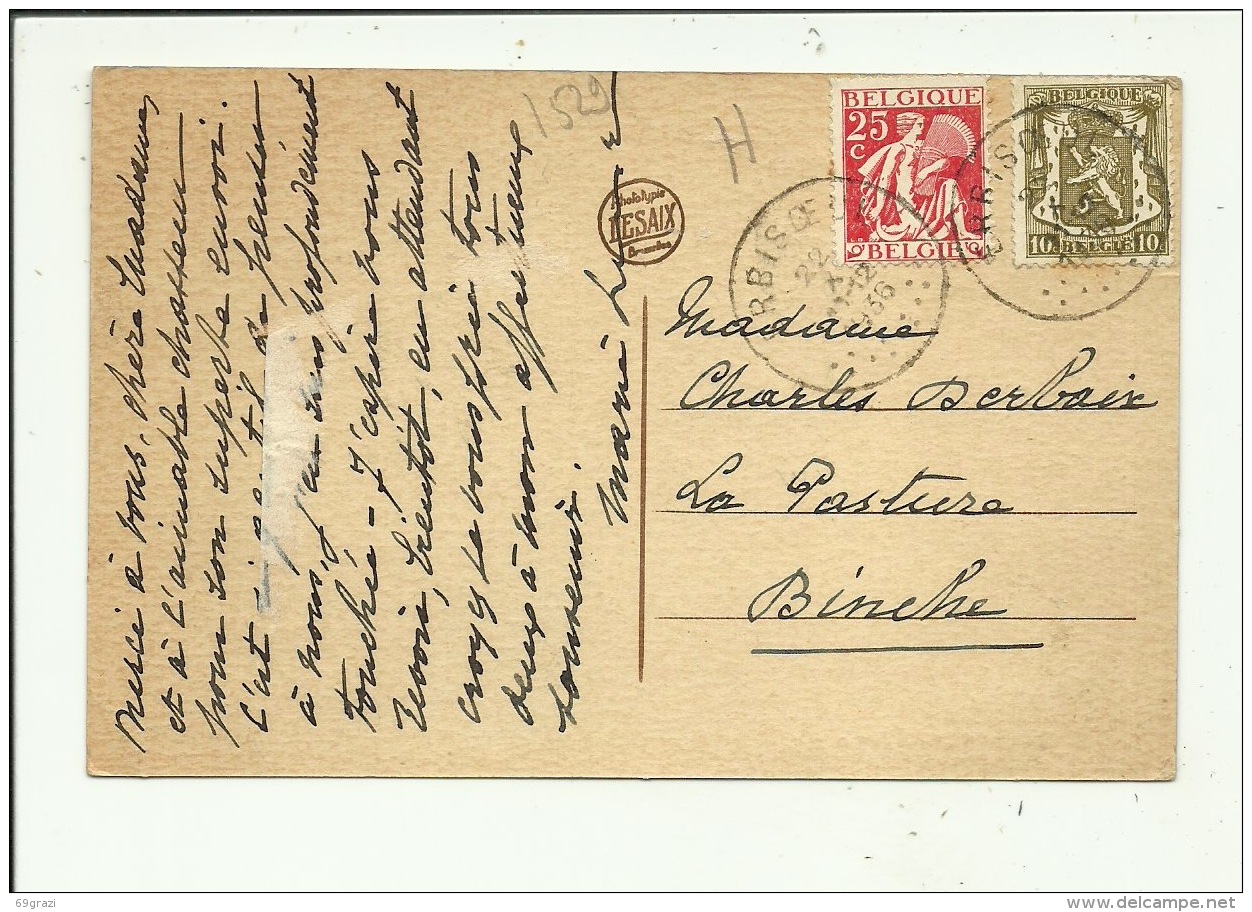 Merci à vous, chère Madame,
et à l'aimable chasseur
pour son superbe envoi.
C'est de penser
à nous, j'en suis profondément
touchée - J'espère vous
revoir, bientôt, en attendant
croyez je vous prie tous
deux à mon affectueux
souvenir.
1529
H
Phototypie
DESAIX
Bruxelles
BELGIQUE
25
C
BELGIE
BELGIQUE
10 BELGIË 10
22
XII
1936
Madame
Charles Derbaix
La Pasture
Binche
69grazi
delcampe.net